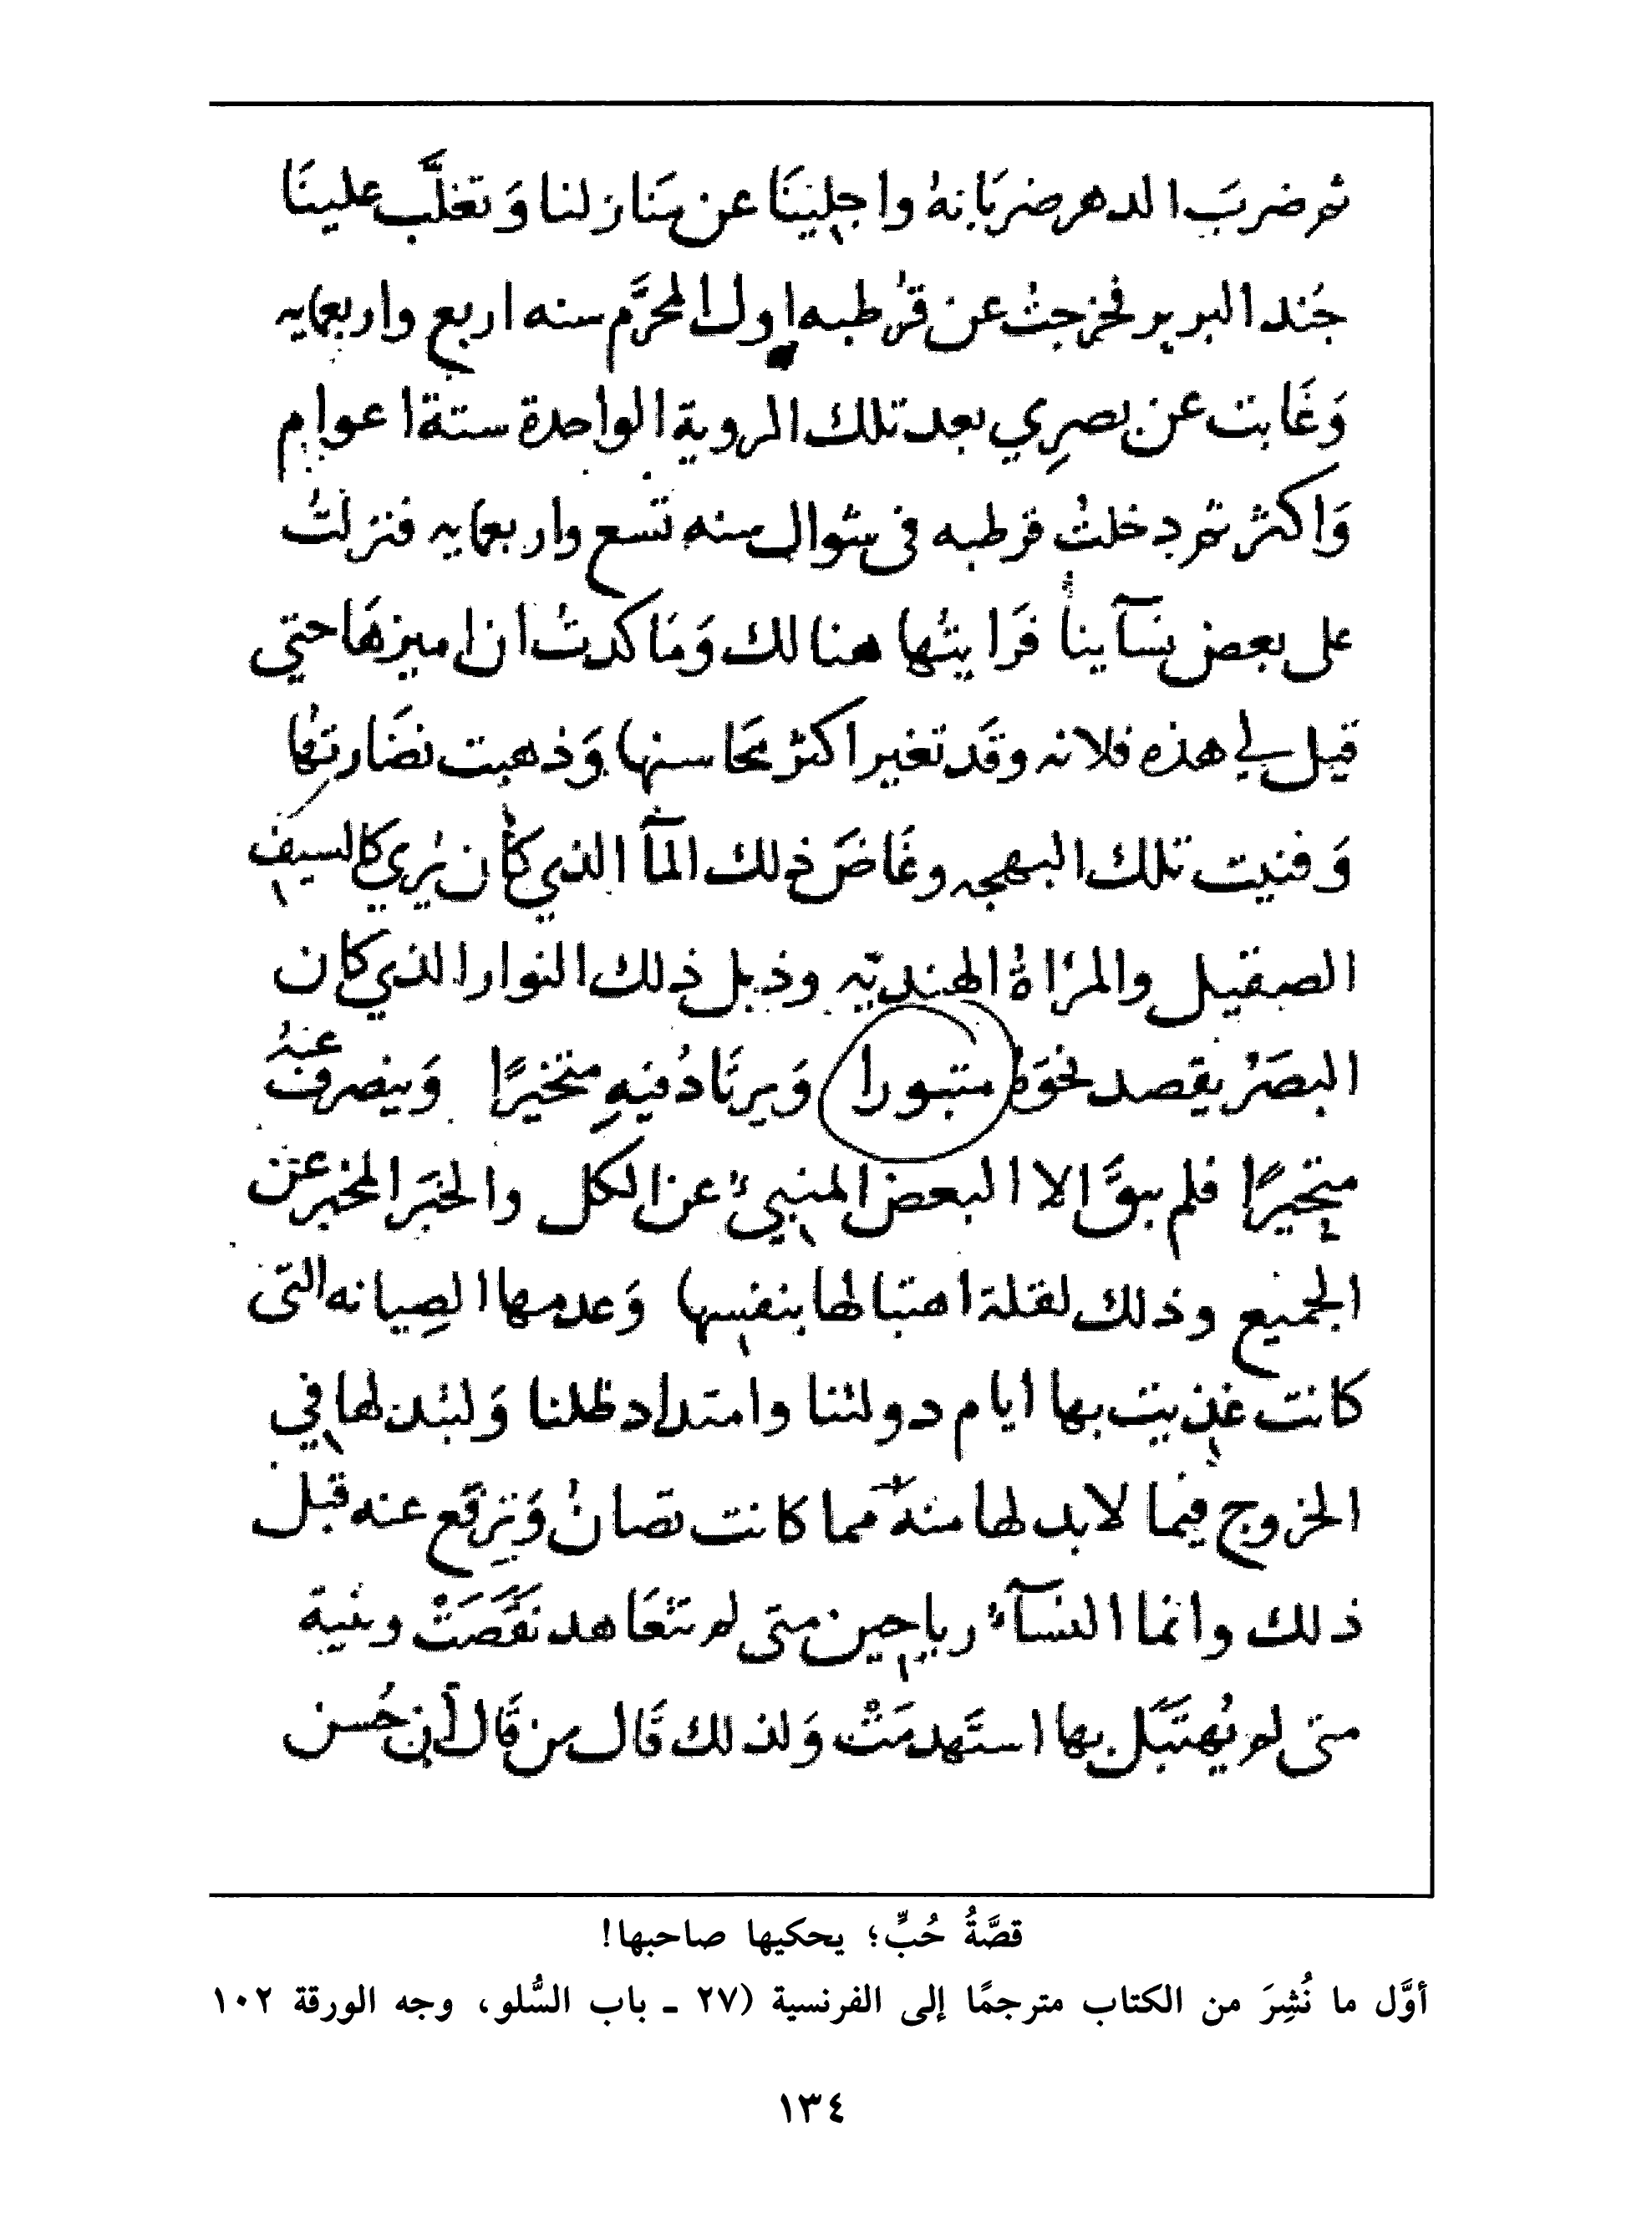 ثم ضربَ الدهر ضرَبَانهُ واجلينَا عن مَنازلنا وَتغلَّب علينَا
جُند البربر فخرجتُ عن قرُطبه اول المحرَّم سنه اربع واربعمايه
وَغَابت عن بصرِي بعد تلك الروية الواحدة ستة اعوام
وَاكثر ثم دخلتُ قرطبه في شوال سنه تسع واربعمايه فنزلتُ
على بعض نسَآينا فَرايتُها هنالك وَمَا كدتُ ان اميزهَا حتى
قيل لي هذه فلانه وقَد تغير اكثر محَاسنها وَذهبت نضَارتهُا
وَفنيت تلك البهجه وغَاضَ ذلك المآ الذي كاَن يُري كالسيف
الصقيل والمرْاةُ الهنديّه وذبل ذلك النوار الذي كان
البصَرُ يقصد نحوَهُ متبورا وَيرتَادُ فيهِ متخيرًا وَينصرف عنهُ
متحيرًا فلم يبقَّ الا البعض المنبيُ عن الكل والخبَر المخبر عن
الجميع وذلك لقلة اهتبالها بنفسها وَعدمها الصِيانه التي
كانت غذيت بها ايام دولتنا وامتداد ظلنا وَلتبُدن لها في
الخروج فيما لابد لها منهُ مما كانت تصَانُ وَترَفَع عنه قبل
ذلك وانما النسَآءُ رياحين متى لم تتعَاهد نقَّصَتْ وبنية
متى لم يُهتَبَل بها استَهدمَتْ وَلذلك قَال من قَال أن حُسن
قصَّةُ حُبٍّ؛ يحكيها صاحبها!
أوَّل ما نُشِرَ من الكتاب مترجمًا إلى الفرنسية (٢٧ ـ باب السُّلو، وجه الورقة ١٠٢
١٣٤